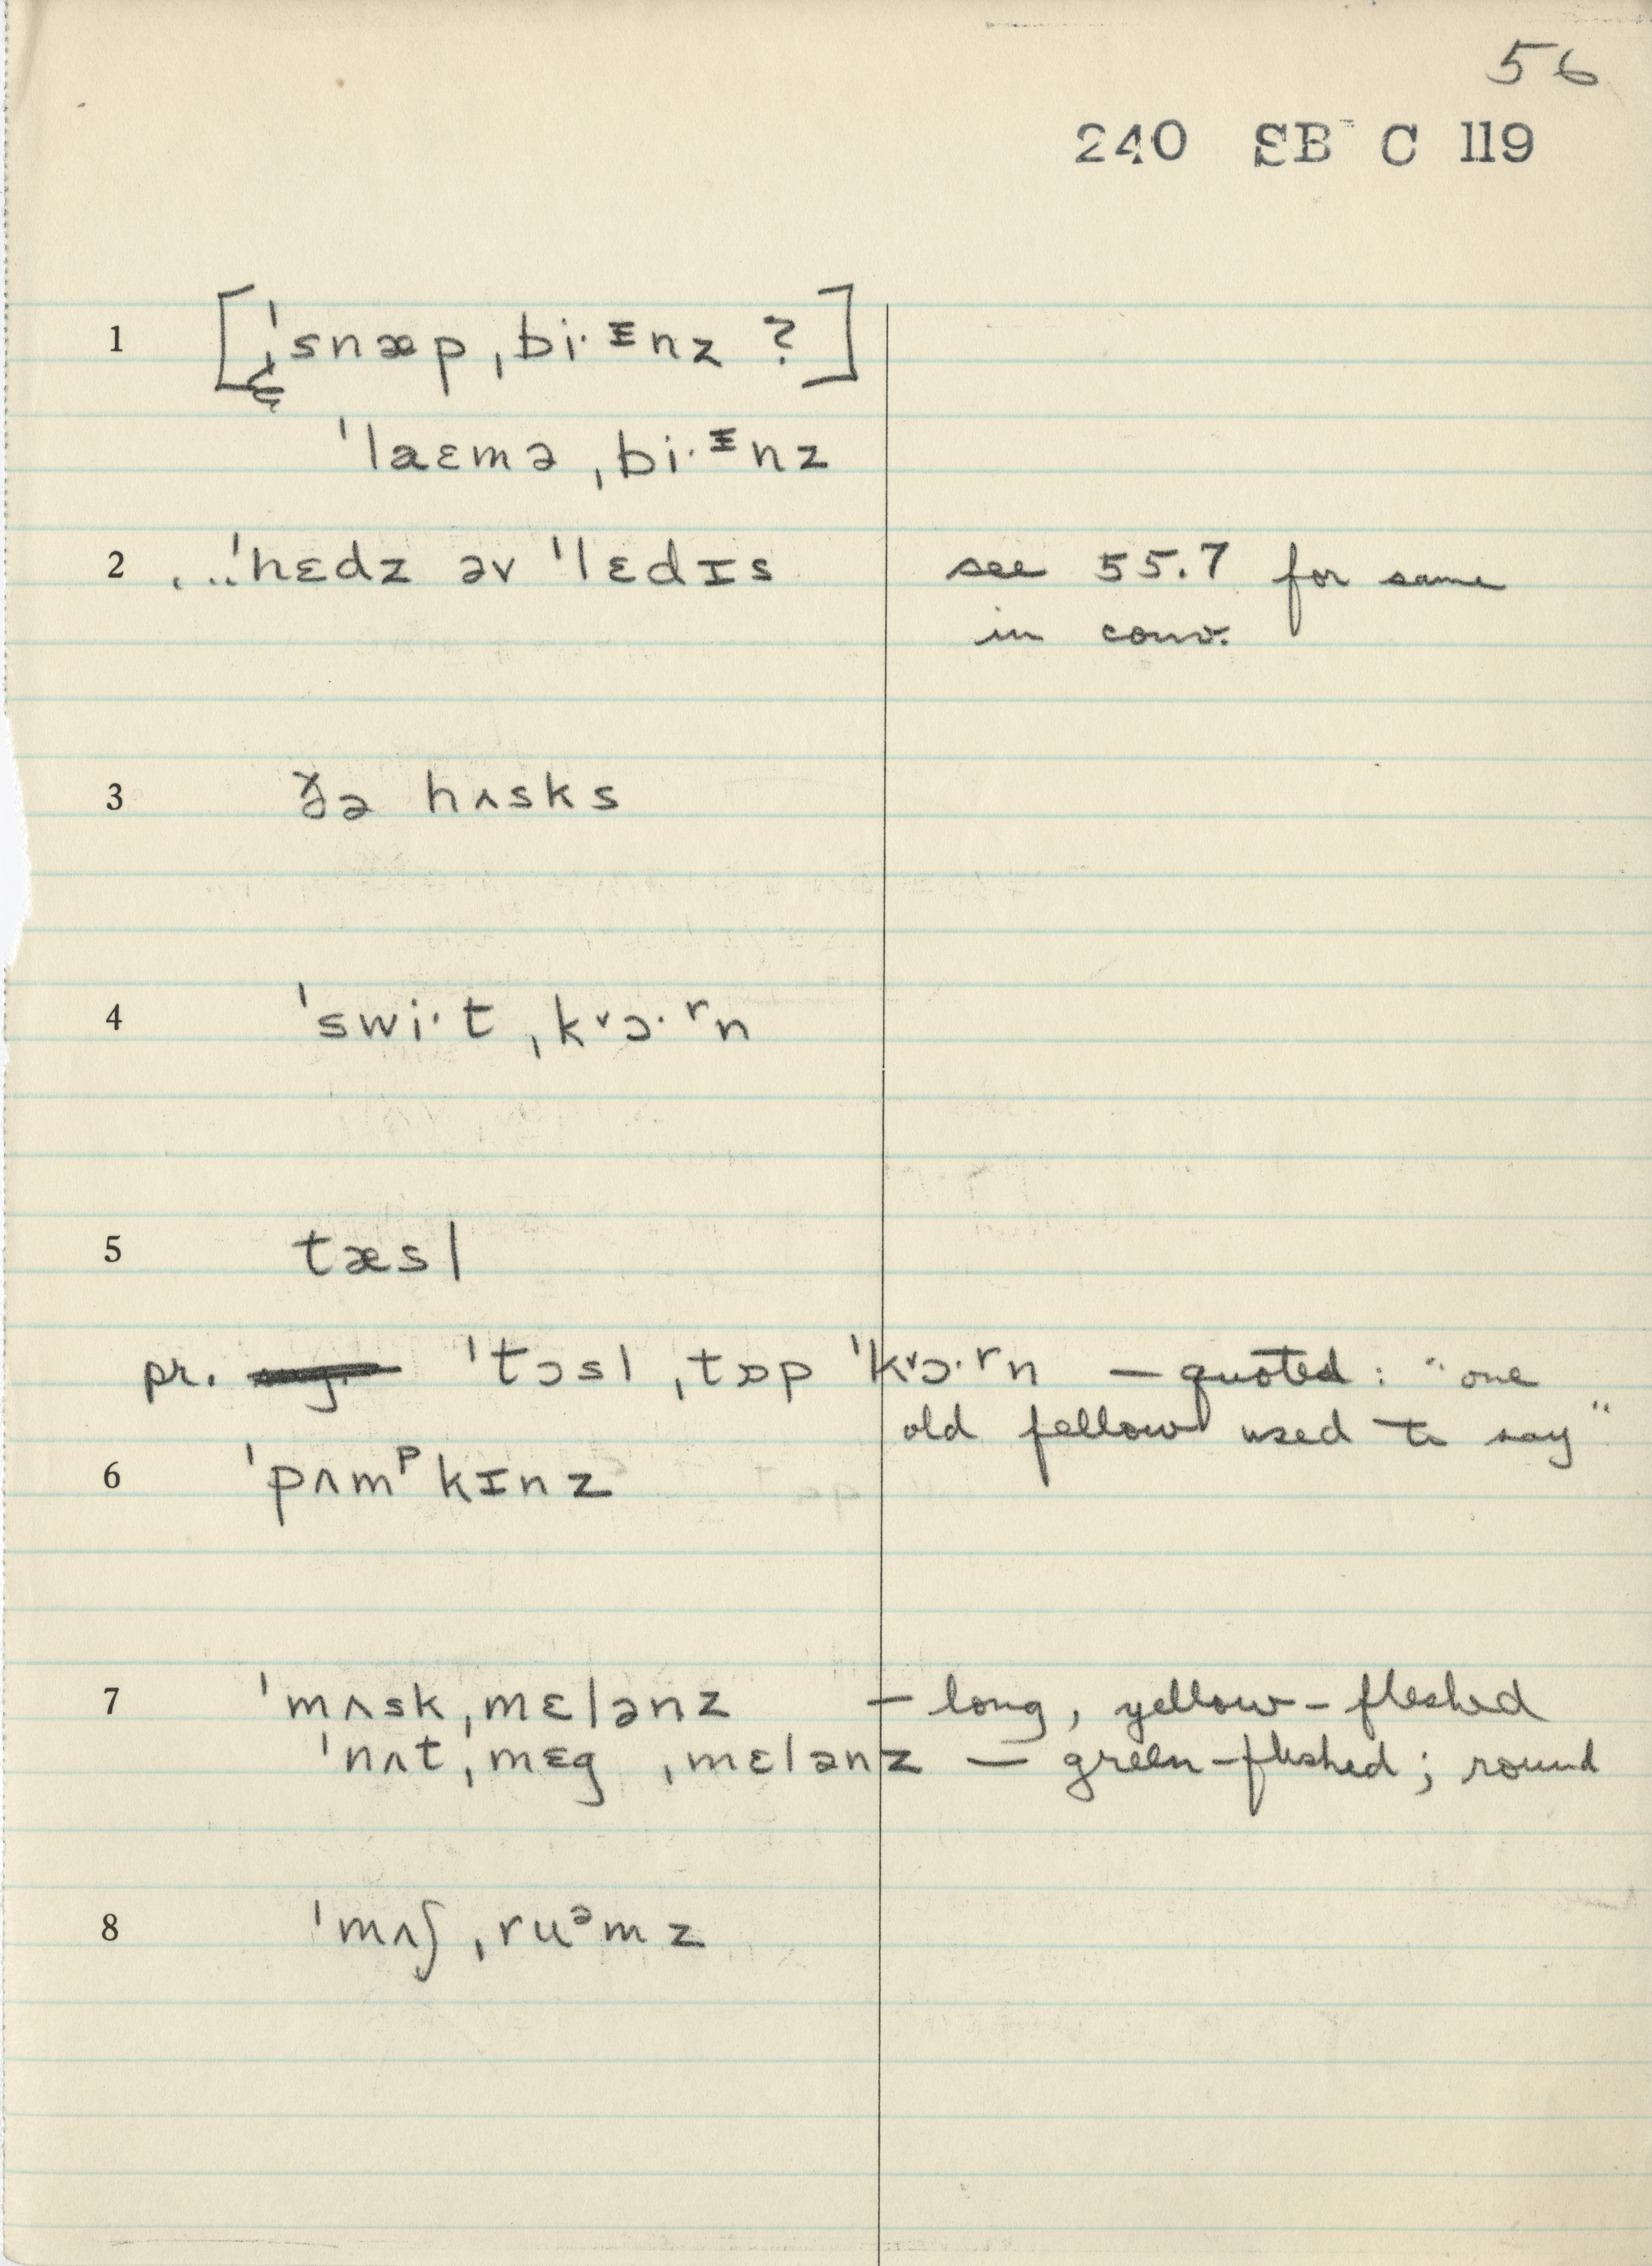 56
240 SB C 119
1 [ˈsnæp ˌbi·ᶦnz ?]
ˈlaɛmə ˌbi·ᶦnz
2 ...ˈhɛdz əv ˈlɛdɪs see 55.7 for same
in conv.
3 ðə hʌsks
4 ˈswi·t ˌkᵛɔ·ʳn
5 tæsl
pr. ˈtɔsl ˌtɒp ˈkᵛɔ·ʳn — quoted: "one
old fellow used to say"
6 ˈpʌmᵖkɪnz
7 ˈmʌskˌmɛlənz — long, yellow-fleshed
ˈnʌtˌmɛg ˌmɛlənz — green-fleshed; round
8 ˈmʌʃˌruᵊmz